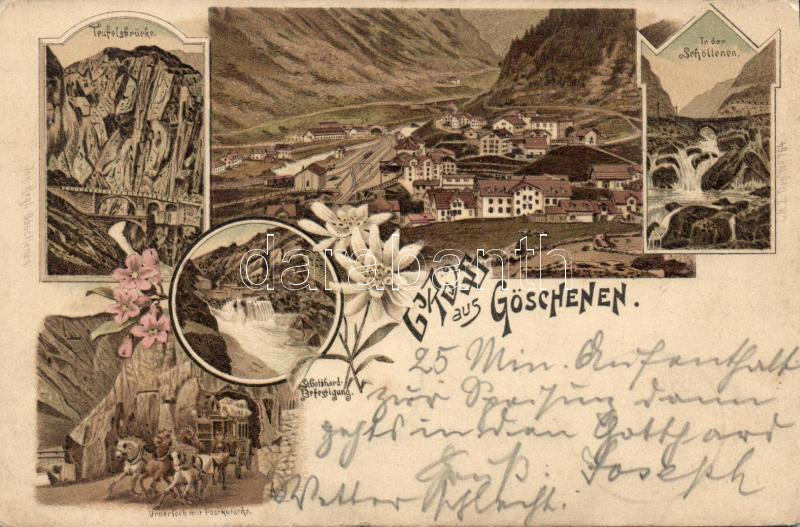 Teufelsbrücke.
In der
Schöllenen.
darabanth
Gruss
aus GÖSCHENEN.
St. Gotthard-
Befestigung.
Urnerloch mit Postkutsche.
25 Min. Aufenthalt
zur Speisung dann
gehts in den Gotthard
Gruß: Joseph
Wetter schlecht.